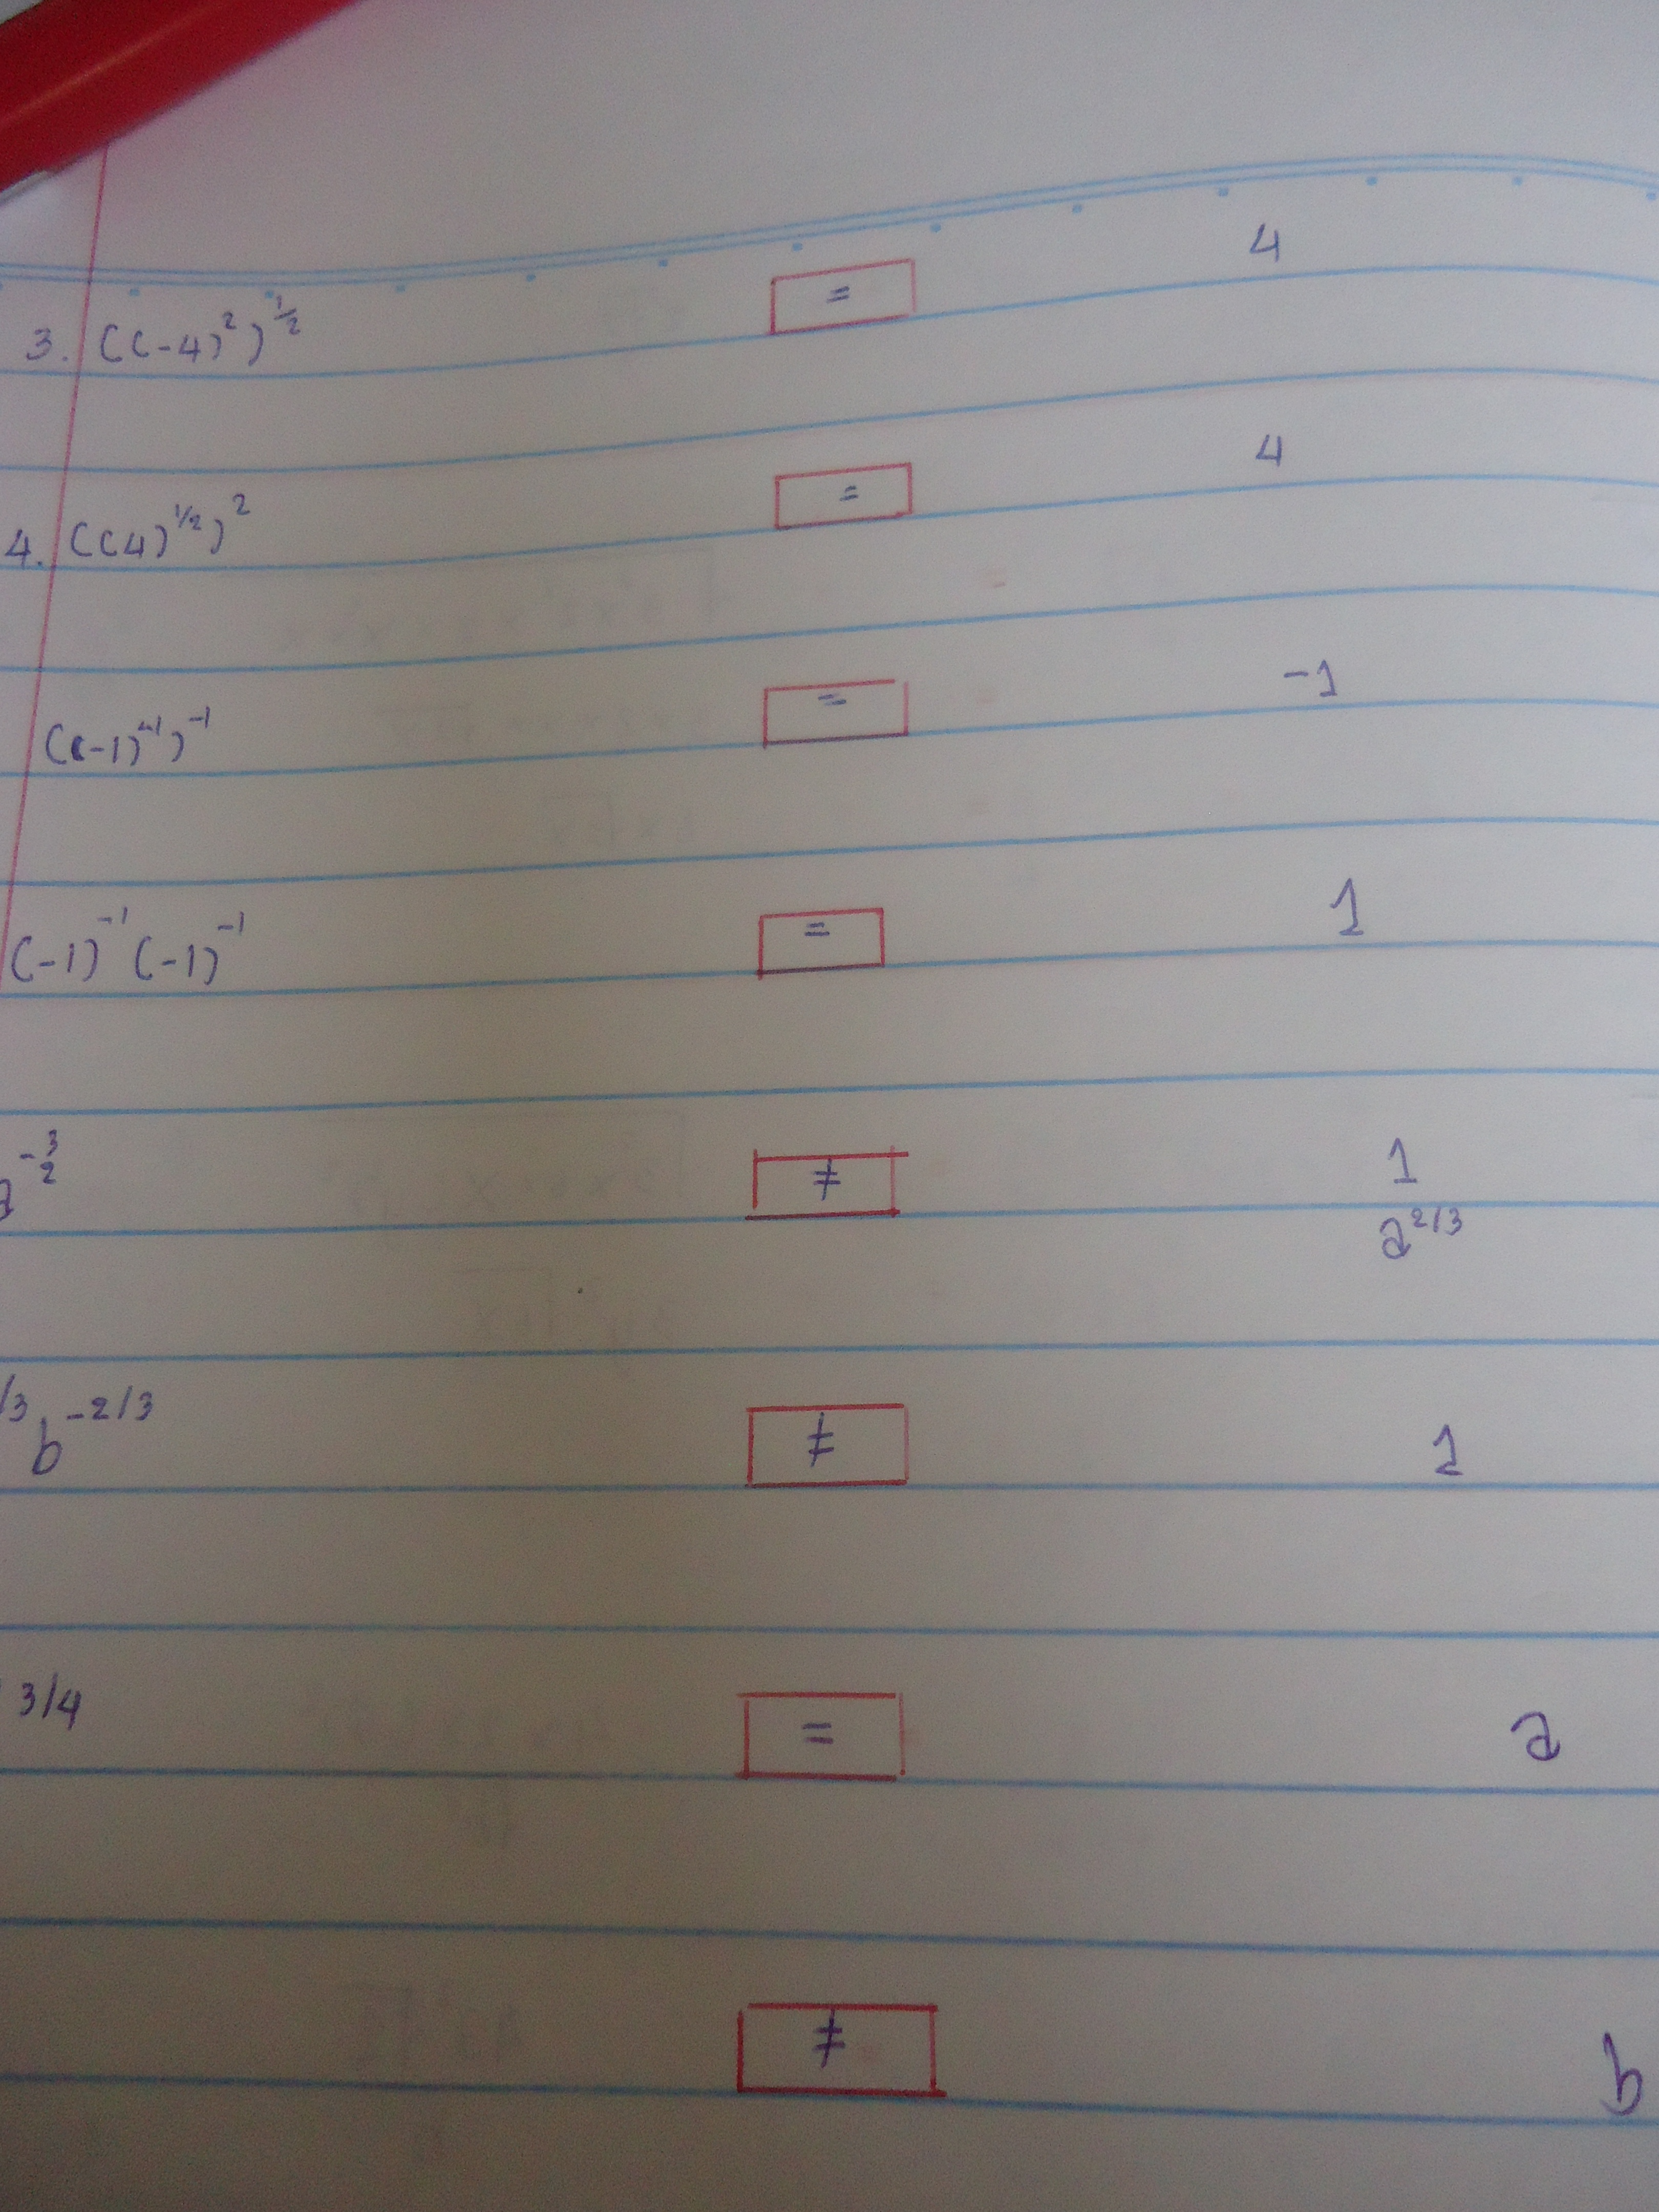 3. ((-4)²)^½ = 4
4. ((4)^1/2)² = 4
((-1)⁻¹)⁻¹ = -1
(-1)⁻¹ (-1)⁻¹ = 1
a^-3/2 ≠ 1/a^2/3
/3 b^-2/3 ≠ 1
3/4 = a
≠ b